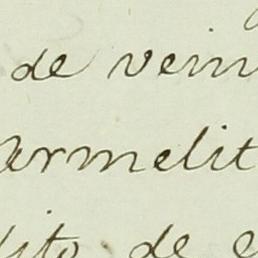 de vein
armelit
dito de e